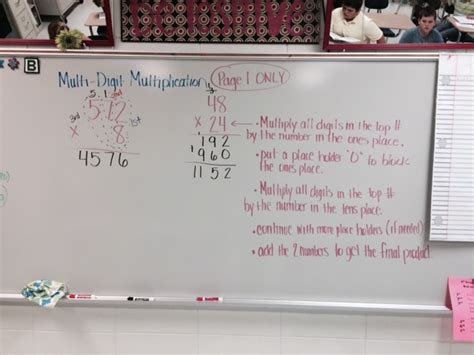 B
Multi-Digit Multiplication
Page 1 ONLY
512
3rd
1st
x 8
4576
48
x 24
192
960
1152
• Multiply all digits in the top #
by the number in the ones place.
• put a place holder "0" to block
the ones place.
• Multiply all digits in the top #
by the number in the tens place.
• continue with more place holders (if needed)
• add the 2 numbers to get the final product.